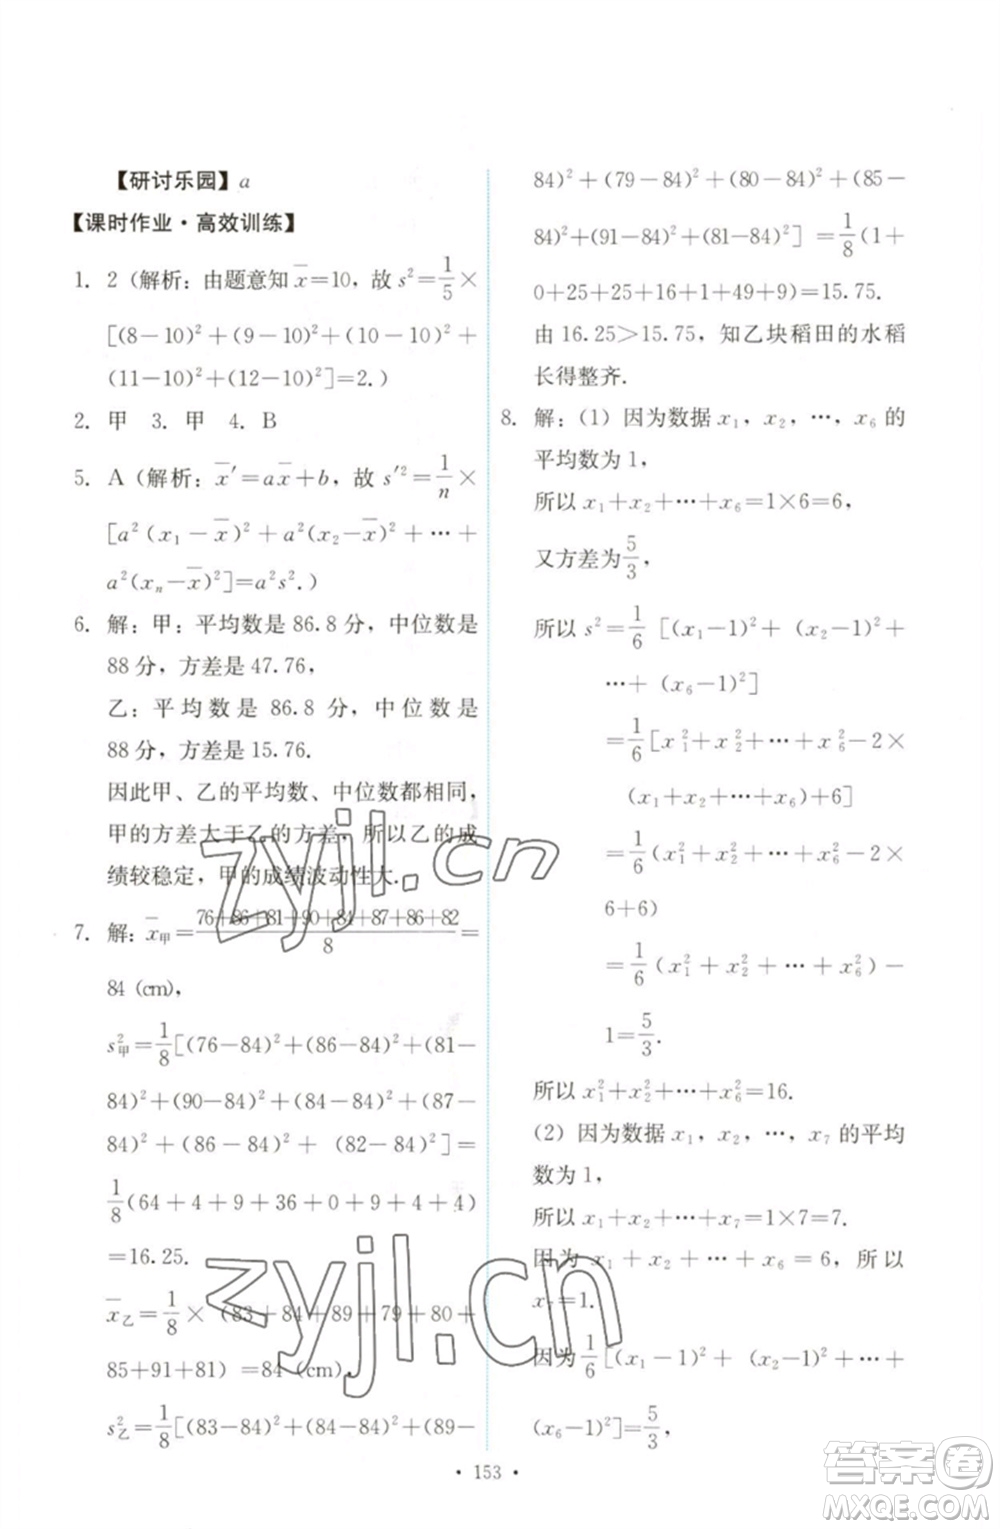 【研讨乐园】a
【课时作业·高效训练】
1. 2(解析:由题意知 x̄=10,故 s²=1/5×
[(8-10)²+(9-10)²+(10-10)²+
(11-10)²+(12-10)²]=2.)
2. 甲 3. 甲 4. B
5. A(解析:x̄′=ax̄+b,故 s′²=1/n×
[a²(x₁-x̄)²+a²(x₂-x̄)²+…+
a²(xₙ-x̄)²]=a²s².)
6. 解:甲:平均数是 86.8 分,中位数是
88 分,方差是 47.76,
乙:平均数是 86.8 分,中位数是
88 分,方差是 15.76.
因此甲、乙的平均数、中位数都相同,
甲的方差大于乙的方差,所以乙的成
绩较稳定,甲的成绩波动性大.
7. 解:x̄甲=(76+86+81+90+84+87+86+82)/8=
84 (cm),
s²甲=1/8[(76-84)²+(86-84)²+(81-
84)²+(90-84)²+(84-84)²+(87-
84)²+(86-84)²+(82-84)²]=
1/8(64+4+9+36+0+9+4+4)
=16.25.
x̄乙=1/8×(83+84+89+79+80+
85+91+81)=84 (cm),
s²乙=1/8[(83-84)²+(84-84)²+(89-
84)²+(79-84)²+(80-84)²+(85-
84)²+(91-84)²+(81-84)²]=1/8(1+
0+25+25+16+1+49+9)=15.75.
由 16.25>15.75,知乙块稻田的水稻
长得整齐.
8. 解:(1)因为数据 x₁,x₂,…,x₆ 的
平均数为 1,
所以 x₁+x₂+…+x₆=1×6=6,
又方差为5/3,
所以 s²=1/6[(x₁-1)²+(x₂-1)²+
…+(x₆-1)²]
=1/6[x₁²+x₂²+…+x₆²-2×
(x₁+x₂+…+x₆)+6]
=1/6(x₁²+x₂²+…+x₆²-2×
6+6)
=1/6(x₁²+x₂²+…+x₆²)-
1=5/3.
所以 x₁²+x₂²+…+x₆²=16.
(2)因为数据 x₁,x₂,…,x₇ 的平均
数为 1,
所以 x₁+x₂+…+x₇=1×7=7.
因为 x₁+x₂+…+x₆=6,所以
x₇=1.
因为1/6[(x₁-1)²+(x₂-1)²+…+
(x₆-1)²]=5/3,
· 153 ·
zyjl.cn
zyjl.cn
答案圈
MXQE.COM